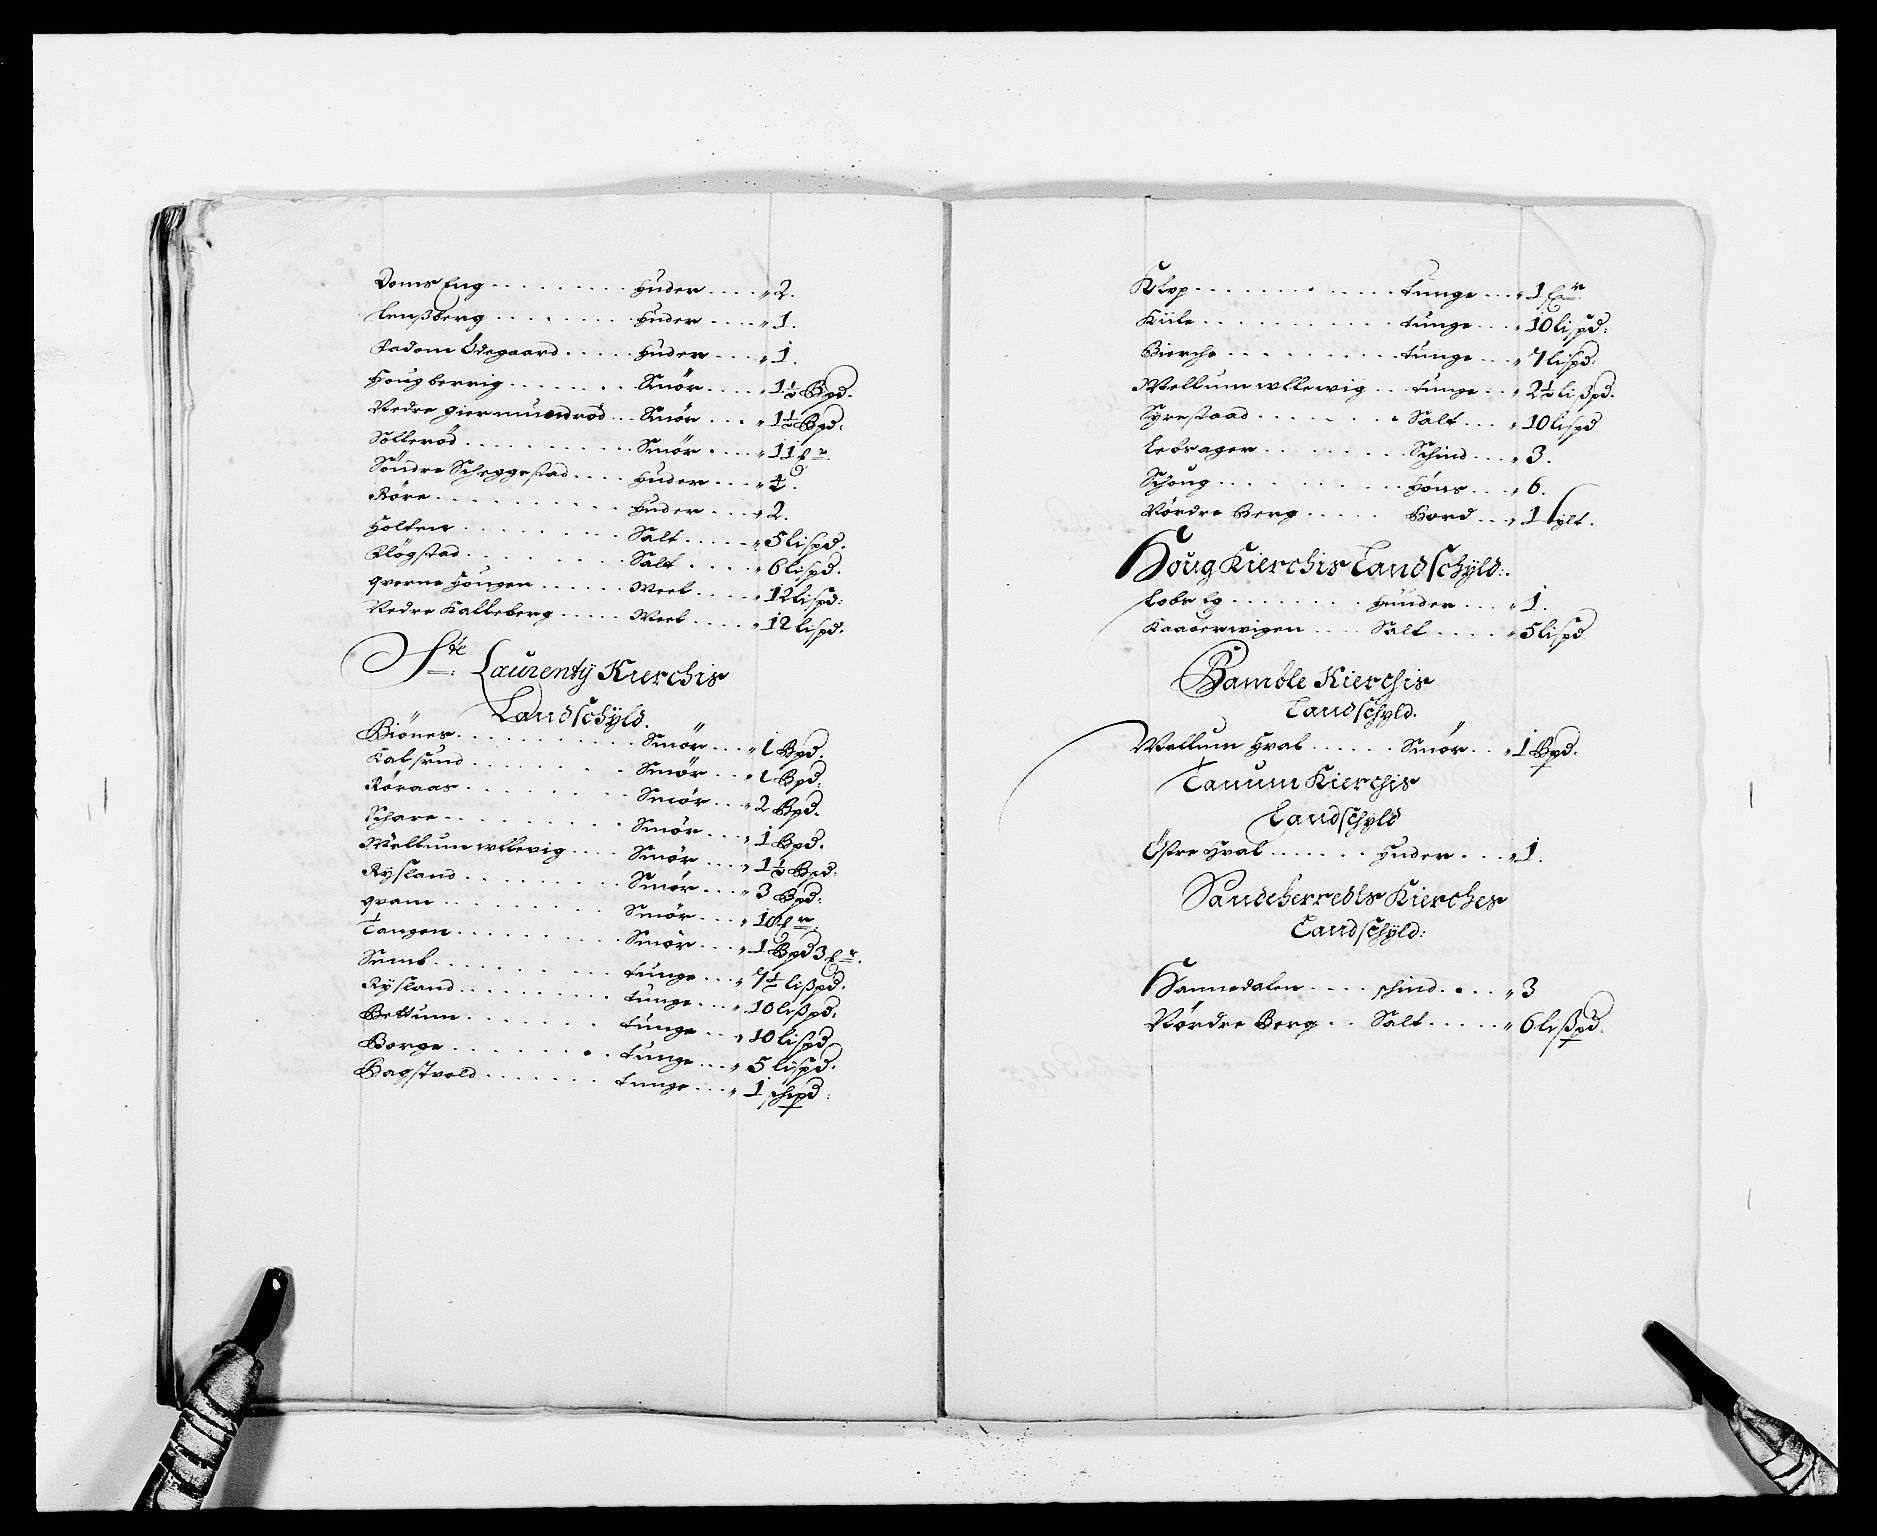 Doms Eng . . . . . . . . . Huder . . . . „ 2.
Lensßberg . . . . . . . . Huder . . . . „ 1.
Fadom Ödegaard . . . . . Huder . . . „ 1.
Hougberrig . . . . . . . Smör . . . . „ 1½ Bpd.
Nedre giermundröd . . . Smör . . . „ 1½ Bpd:
Solleröd . . . . . . . . . Smör . . . . „ 11
Söndre Scheggestad . . . . Huder . . . „ 4.
Röre . . . . . . . . . . Huder . . . „ 2.
Holten . . . . . . . . . Salt . . . . . „ 5 lispd.
Klögstad . . . . . . . . Salt . . . . „ 6 lispd.
qverne Hougen . . . . . . Meel . . . . „ 12 lispd:
Nedre Kalleberg . . . . . Meel . . . . „ 12 lispd.
Ste: Laurentÿ Kierchis
Landschÿld.
Biönes . . . . . . . . . Smör . . . „ 1 Bpd.
Kalsrud . . . . . . . . Smör . . . „ 1 Bpd:
Röraas . . . . . . . . . Smör . . . „ 2 Bpd.
Schare . . . . . . . . . Smör . . . „ 1 Bpd.
Mellum ullevig . . . . Smör . . . . „ 1½ Bpd:
Rysland . . . . . . . . Smör . . . . „ 3 Bpd:
qvam . . . . . . . . . . Smör . . . . „ 10
Tangen . . . . . . . . . Smör . . . . „ 1 Bpd 3
Semb . . . . . . . . . . tunge . . . „ 7½ lißpd.
Rysland . . . . . . . . tunge . . . „ 10 lißpd.
Bettum . . . . . . . . . tunge . . . „ 10 lispd
Borge . . . . . . . . . tunge . . . „ 5 lispd.
Bagstvold . . . . . . . tunge . . . „ 1 schpd:
Klop . . . . . . . . . . tunge . . . „ 1
Kiile . . . . . . . . . . tunge . . . „ 10 lispd:
Bierche . . . . . . . . . tunge . . . „ 7 lispd:
Mellum ullewig . . . tunge . . . . „ 2½ lißpd.
Syrestaad . . . . . . . . Salt . . . „ 10 lispd
Lebsager . . . . . . . . . Schind . . . „ 3.
Schoug . . . . . . . . . Höns . . . . „ 6.
Nördre Berg . . . . . Bord . . . „ 1 tylt.
Houg Kierchis Landschÿld:.
. . . . . . . . Hunder . . . . „ 1.
. . . . Salt . . . . . „ 5 lispd
Bamble Kierchis
Landschyld.
Mellum Hval . . . . . . Smör . . . „ 1 Bpd.
Tanum Kierchis
Landschyld
Östre Hval . . . . . . . Huder . . . . „ 1.
Sandeherredts Kierches
Landschÿld:
Hannedalen . . . . schind . . . . „ 3
Nördre Berg . . Salt . . . . . „ 6 lißpd.